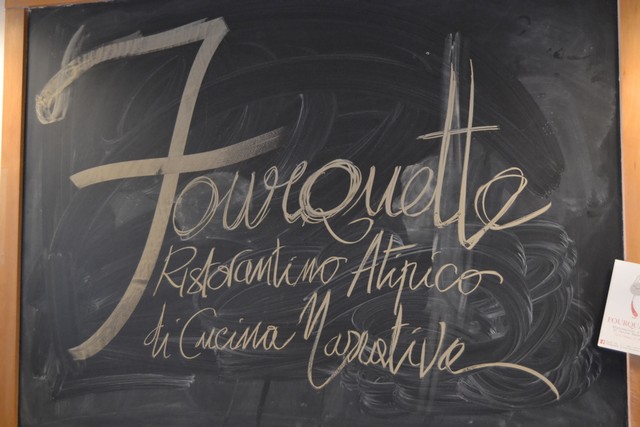 Fourquette
Ristorantino Atipico
di Cucina Narrativa
FOURQU